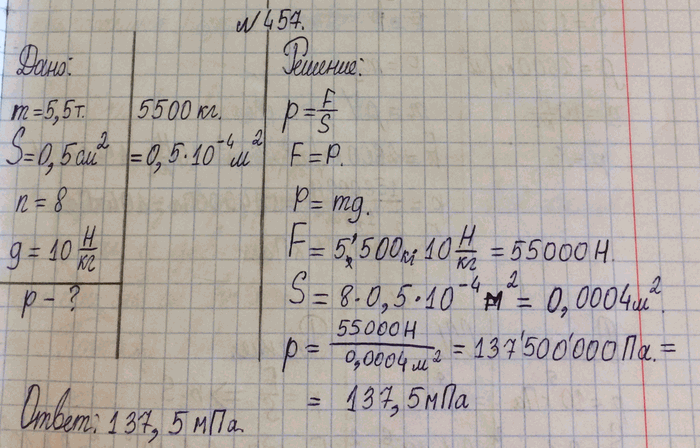 № 457.
Дано:
m=5,5т. 5500 кг.
S=0,5см² =0,5·10⁻⁴м²
n=8
g=10 Н/кг
p-?
Решение:
p=F/S
F=P.
P=mg.
F=5'500кг·10 Н/кг=55000Н.
S=8·0,5·10⁻⁴м²=0,0004м².
p=55000Н/0,0004м²=137'500'000Па.=
=137,5мПа
Ответ: 137,5мПа.